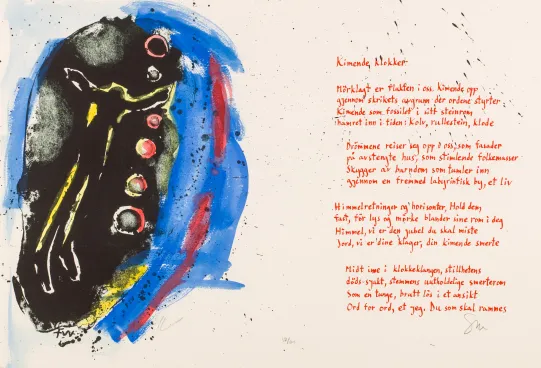 Kimende, klokker
Mörklagt er flukten i oss. Kimende opp
gjennom skrikets avgrunn der ordene styrter.
Kimende som fossilet i sitt steinrom
hamret inn i tiden: kolv, rullestein, klode
Drömmene reiser seg opp i oss, som fasader
på avstengte hus, som stimlende folkemasser
Skygger av barndom som tumler inn
gjennom en fremmed labyrintisk by, et liv
Himmelretninger og horisonter, Hold dem
fast, før lys og mørke blander sine rom i deg
Himmel, vi er den jubel du skal miste
Jord, vi er dine klager, din kimende smerte
Midt inne i klokkeklangen, stillhetens
döds-sjukt, stemmens uutholdelige smerterom
Som en tunge, bratt løs i et ansikt
Ord for ord, et jeg. Du som skal rammes